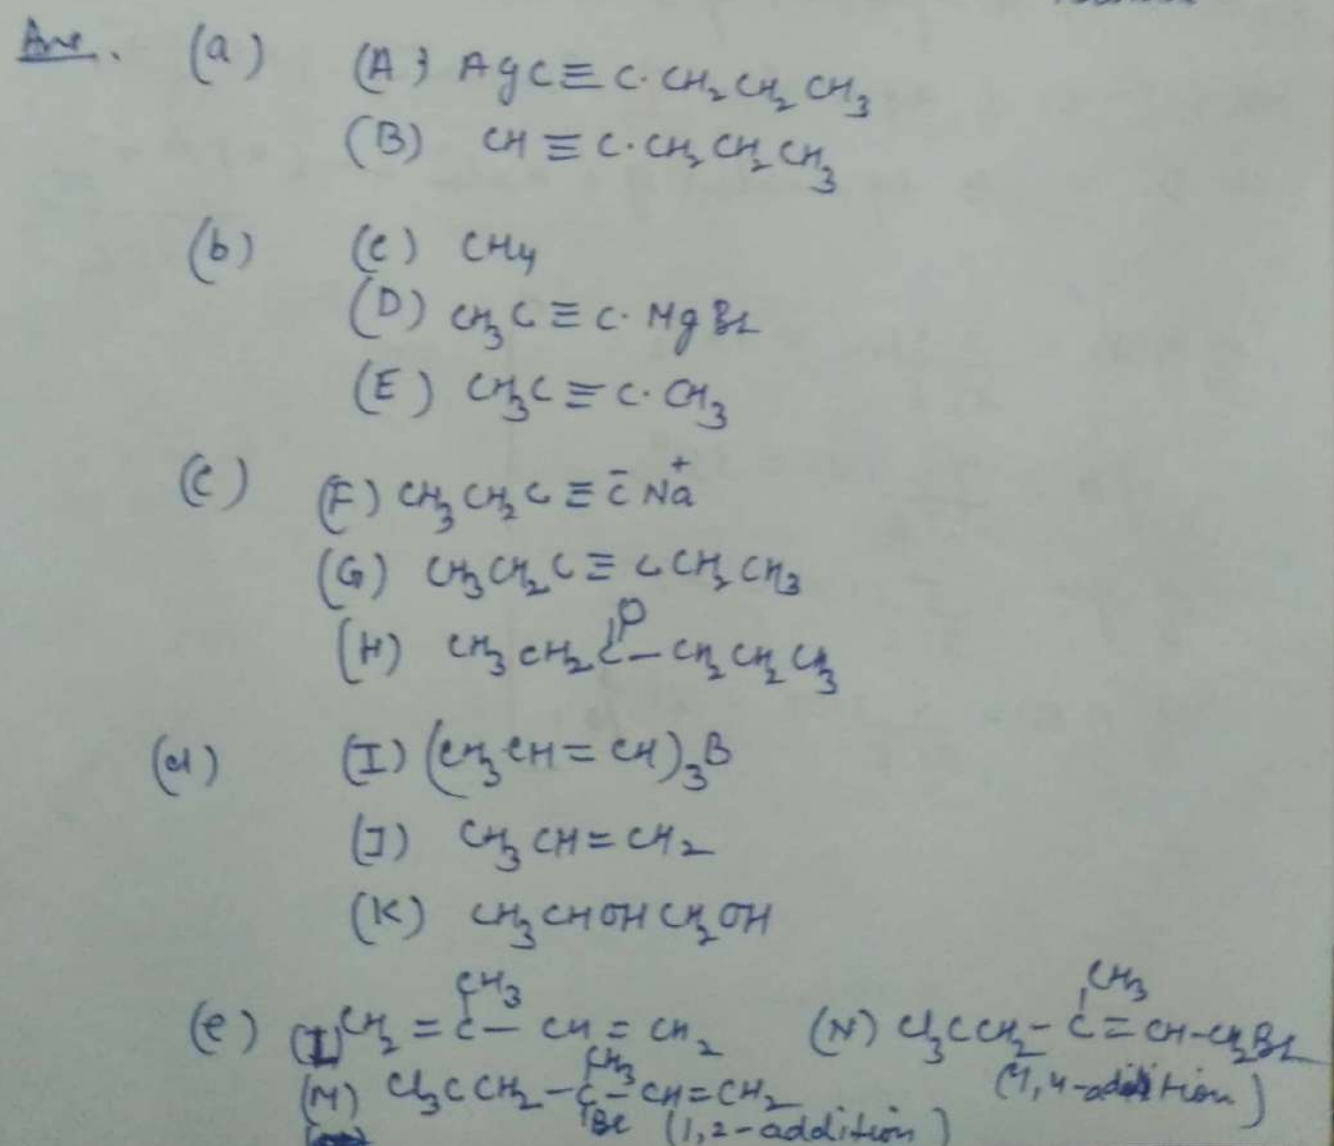 Ans. (a) (A) AgC≡C·CH₂CH₂CH₃
(B) CH≡C·CH₂CH₂CH₃
(b) (C) CH₄
(D) CH₃C≡C·MgBr
(E) CH₃C≡C·CH₃
(c) (F) CH₃CH₂C≡C̄Na⁺
(G) CH₃CH₂C≡CCH₂CH₃
O
(H) CH₃CH₂C–CH₂CH₂CH₃
(d) (I) (CH₃CH=CH)₃B
(J) CH₃CH=CH₂
(K) CH₃CHOHCH₂OH
CH₃ CH₃
(e) (L) CH₂=C–CH=CH₂ (N) Cl₃CCH₂–C=CH–CH₂Br
CH₃ (1,4-addition)
(M) Cl₃CCH₂–C–CH=CH₂
Br (1,2-addition)